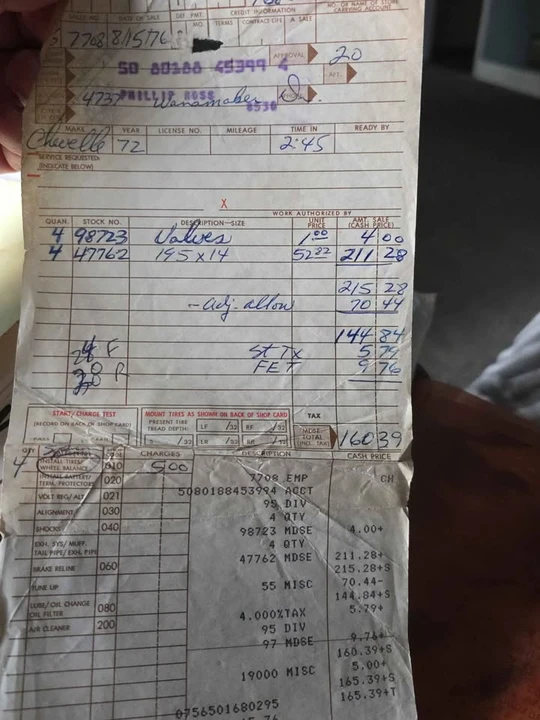 DATE OF SALE CREDIT INFORMATION NO. OR NAME OF STORE
MO. TERMS CONTRACT LIFE A SALE CARRYING ACCOUNT
7708 8/15/76
APPROVAL 20
50 80188 45399 4
PHILLIP ROSS
4737 Wanamaker
8530
MAKE YEAR LICENSE NO. MILEAGE TIME IN READY BY
Chevelle 72 2:45
SERVICE REQUESTED:
(INDICATE BELOW)
X
WORK AUTHORIZED BY
QUAN. STOCK NO. DESCRIPTION-SIZE UNIT PRICE AMT. SALE (CASH PRICE)
4 98723 Valves 1.00 4 00
4 47762 195x14 52 82 211 28
215 28
-adj. allow 70 44
144 84
F St Tx 5 79
R FET 9 76
START/CHARGE TEST MOUNT TIRES AS SHOWN ON BACK OF SHOP CARD TAX
(RECORD ON BACK OF SHOP CARD) PRESENT TIRE TREAD DEPTH: LF /32 RF /32
MDSE. TOTAL (INCL. TAX) 160 39
CHARGES DESCRIPTION CASH PRICE
4 INSTALL TIRES WHEEL BALANCE 010 5.00
INSTALL BATTERY TERM. PROTECTORS 020
VOLT REG/ALT 021
ALIGNMENT 030
SHOCKS 040
EXH. SYS/MUFF.
TAIL PIPE/EXH. PIPE
BRAKE RELINE 060
TUNE UP
LUBE/OIL CHANGE
OIL FILTER 080
AIR CLEANER 200
7708 EMP CH
5080188453994 ACCT
95 DIV
4 QTY
98723 MDSE 4.00+
4 QTY
47762 MDSE 211.28+
215.28+S
55 MISC 70.44-
144.84+S
4.000%TAX 5.79+
95 DIV
97 MDSE 9.76+
160.39+S
19000 MISC 5.00+
165.39+S
165.39+T
0756501680295